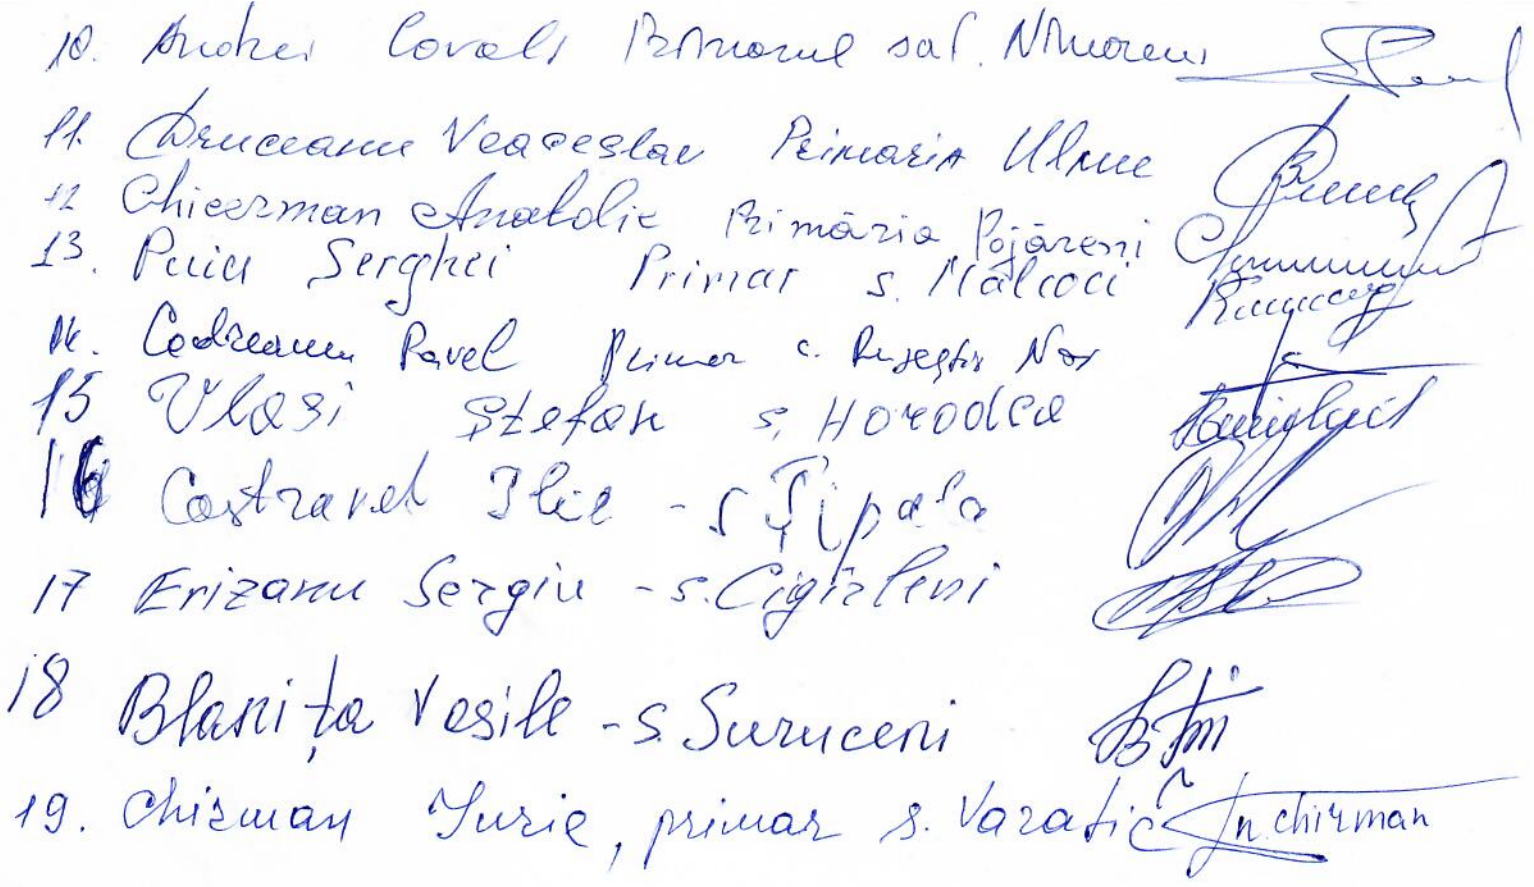 10. Andrei Covali Primarul sat. Nimoreni
11. Druceanu Veaceslav Primaria Ulmu
12 Chicerman Anatolie Primăria Pojăreni
13. Puiu Serghei Primar s. Malcoci
14. Codreanu Pavel Primar c. Ruseștii Noi
15 Vlasi Ștefan s. Horodca
16 Castravet Ilie - s Țipala
17 Erizanu Sergiu - s. Cigîrleni
18 Blanița Vasile - s. Suruceni
19. Chirman Iurie, primar s. Varatic Chirman